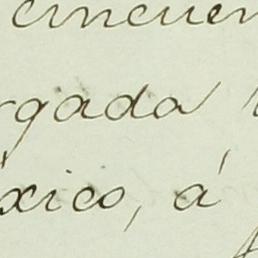 cincuen
rgada
xico, á